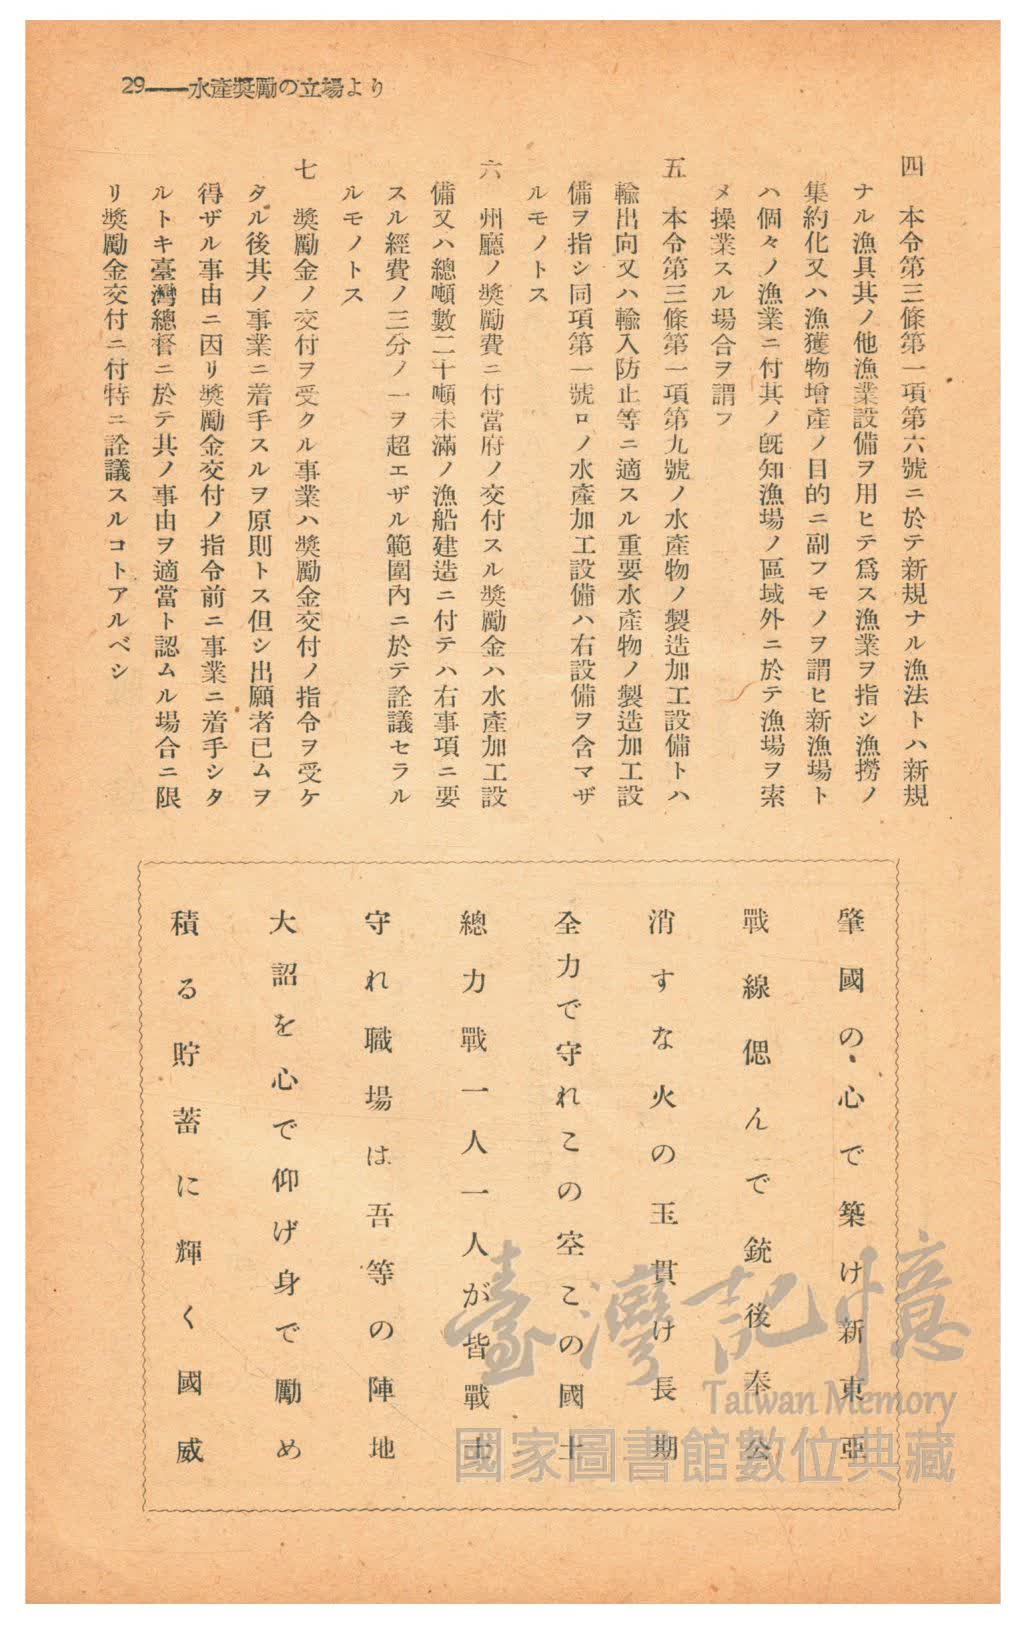 29――水產獎勵の立場より
四　本令第三條第一項第六號ニ於テ新規ナル漁法トハ新規
ナル漁具其ノ他漁業設備ヲ用ヒテ爲ス漁業ヲ指シ漁撈ノ
集約化又ハ漁獲物增產ノ目的ニ副フモノヲ謂ヒ新漁場ト
ハ個々ノ漁業ニ付其ノ旣知漁場ノ區域外ニ於テ漁場ヲ索
メ操業スル場合ヲ謂フ
五　本令第三條第一項第九號ノ水產物ノ製造加工設備トハ
輸出向又ハ輸入防止等ニ適スル重要水產物ノ製造加工設
備ヲ指シ同項第一號ロノ水產加工設備ハ右設備ヲ含マザ
ルモノトス
六　州廳ノ獎勵費ニ付當府ノ交付スル獎勵金ハ水產加工設
備又ハ總噸數二十噸未滿ノ漁船建造ニ付テハ右事項ニ要
スル經費ノ三分ノ一ヲ超エザル範圍內ニ於テ詮議セラル
ルモノトス
七　獎勵金ノ交付ヲ受クル事業ハ獎勵金交付ノ指令ヲ受ケ
タル後其ノ事業ニ着手スルヲ原則トス但シ出願者已ムヲ
得ザル事由ニ因リ獎勵金交付ノ指令前ニ事業ニ着手シタ
ルトキ臺灣總督ニ於テ其ノ事由ヲ適當ト認ムル場合ニ限
リ獎勵金交付ニ付特ニ詮議スルコトアルベシ
肇國の心で築け新東亞
戰線偲んで銃後奉公
消すな火の玉貫け長期
全力で守れこの空この國土
總力戰一人一人が皆戰士
守れ職場は吾等の陣地
大詔を心で仰げ身で勵め
積る貯蓄に輝く國威
臺灣記憶
Taiwan Memory
國家圖書館數位典藏